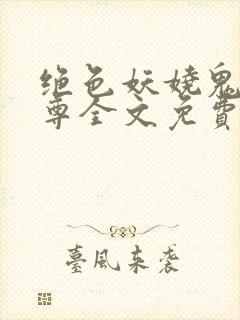 绝色妖娆鬼
尊全文免費
臺風来袭